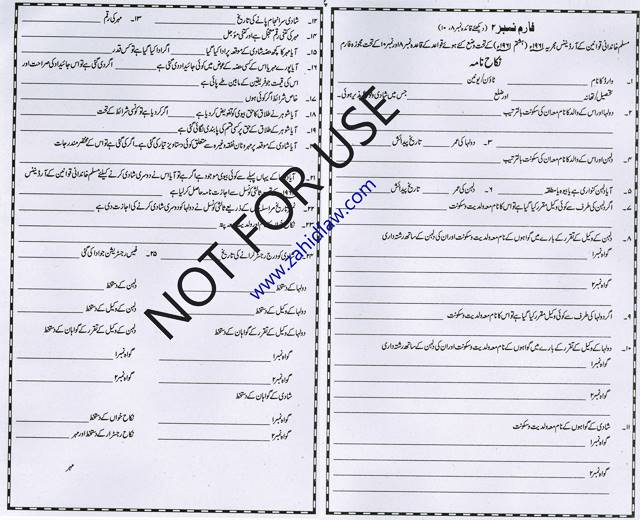 فارم نمبر ۲ (دیکھئے قاعدہ نمبر ۸، ۱۰)
مسلم خاندانی قوانین کے آرڈیننس مجریہ ۱۹۶۱ء (ہشتم ۱۹۶۱ء) کے تحت وضع کئے ہوئے قواعد کے قاعدہ نمبر ۸ اور نمبر ۱۰ کے تحت مجوزہ فارم
نکاح نامہ
۱۔ وارڈ کا نام ٹاؤن/یونین
تحصیل/تھانہ اور ضلع جس میں شادی وقوع پذیر ہوئی۔
۲۔ دولہا اور اس کے والد کا نام معہ ان کی سکونت بالترتیب
۳۔ دولہا کی عمر تاریخ پیدائش
۴۔ دلہن اور اس کے والد کا نام معہ ان کی سکونت بالترتیب
۵۔ آیا دلہن کنواری ہے یا بیوہ یا مطلقہ ۶۔ دلہن کی عمر تاریخ پیدائش
۷۔ اگر دلہن کی طرف سے کوئی وکیل مقرر کیا گیا ہے تو اس کا نام معہ ولدیت و سکونت
۸۔ دلہن کے وکیل کے تقرر کے بارے میں گواہوں کے نام معہ ولدیت و سکونت اور ان کی دلہن کے ساتھ رشتہ داری
۱
۲
۹۔ اگر دولہا کی طرف سے کوئی وکیل مقرر کیا گیا ہے تو اس کا نام معہ ولدیت و سکونت
۱۰۔ دولہا کے وکیل کے تقرر کے بارے میں گواہوں کے نام معہ ولدیت و سکونت اور ان کی دلہن کے ساتھ رشتہ داری
گواہ نمبر ۱
گواہ نمبر ۲
۱۱۔ شادی کے گواہوں کے نام معہ ولدیت و سکونت
گواہ نمبر ۱
گواہ نمبر ۲
۱۲۔ شادی سرانجام پانے کی تاریخ ۱۳۔ مہر کی رقم
۱۴۔ مہر کی کتنی رقم معجل ہے اور کتنی مؤجل
۱۵۔ آیا مہر کا کچھ حصہ شادی کے موقعہ پر ادا کیا گیا اگر ادا کیا گیا ہے تو کس قدر
۱۶۔ آیا پورے مہر یا اس کے کسی حصہ کے عوض میں کوئی جائیداد دی گئی ہے اگر دی گئی ہے تو اس جائیداد کی صراحت اور
اس کی قیمت جو فریقین کے مابین طے پائی ہے
۱۷۔ خاص شرائط اگر کوئی ہوں
۱۸۔ آیا شوہر نے طلاق کا حق بیوی کو تفویض کر دیا ہے اگر کر دیا ہے تو کونسی شرائط کے تحت
۱۹۔ آیا شوہر کے طلاق کے حق پر کسی قسم کی پابندی لگائی گئی ہے
۲۰۔ آیا شادی کے موقعہ پر مہر و نان نفقہ وغیرہ سے متعلق کوئی دستاویز تیار کی گئی ہے۔ اگر کی گئی ہے تو اس کے مختصر مندرجات
۲۱۔ آیا دولہا کے یہاں پہلے سے کوئی بیوی موجود ہے اگر ہے تو آیا اس نے دوسری شادی کرنے کیلئے مسلم خاندانی قوانین کے آرڈیننس
ثالثی کونسل سے اجازت نامہ حاصل کر لیا ہے
۲۲۔ نمبر و تاریخ مراسلہ جس کے ذریعے ثالثی کونسل نے دولہا کو دوسری شادی کرنے کی اجازت دی ہے
۲۳۔
۲۴۔ شادی کو درج رجسٹر کرانے کی تاریخ ۲۵۔ فیس رجسٹریشن جو ادا کی گئی
دولہا کے دستخط دلہن کے دستخط
دولہا کے وکیل کے دستخط دلہن کے وکیل کے دستخط
دولہا کے وکیل کے تقرر کے گواہان کے دستخط دلہن کے وکیل کے تقرر کے گواہان کے دستخط
گواہ نمبر ۱ گواہ نمبر ۱
گواہ نمبر ۲ گواہ نمبر ۲
شادی کے گواہان کے دستخط
گواہ نمبر ۱ نکاح خواں کے دستخط
گواہ نمبر ۲ نکاح رجسٹرار کے دستخط اور مہر
مہر
NOT FOR USE
www.zahidlaw.com